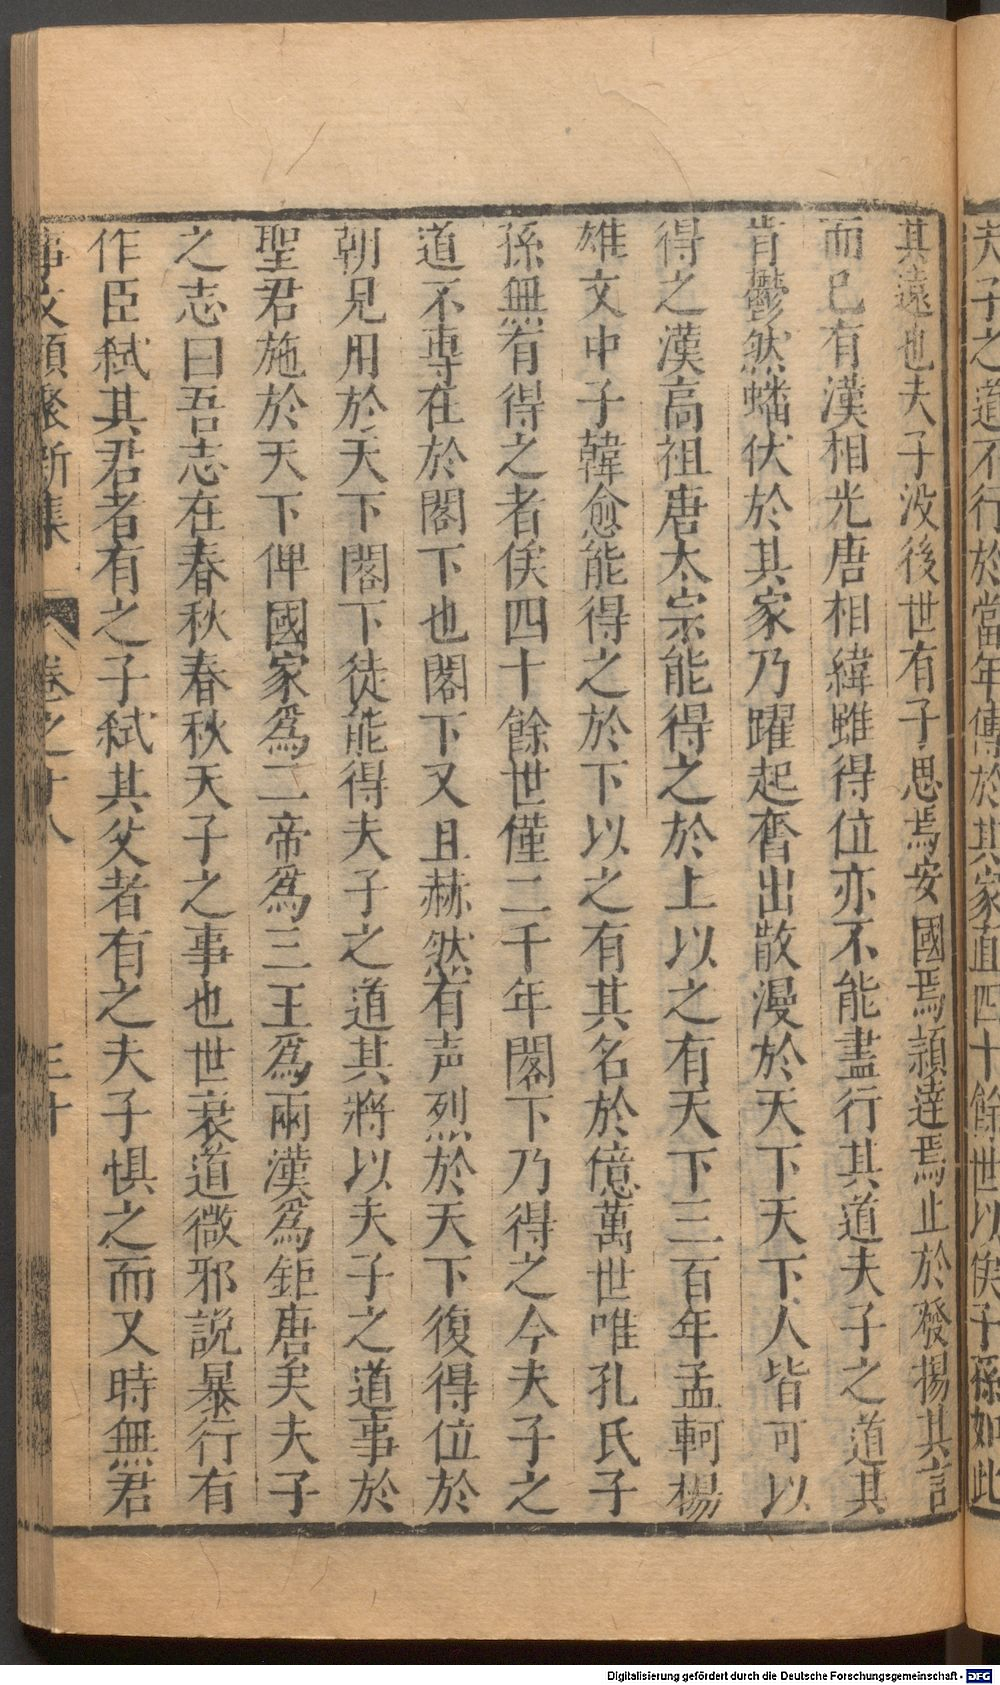 夫子之道不行於當年傳於其家直四十餘世以俟子孫如此
其遠也夫子没後世有子思焉安國焉頴逹焉止於發揚其言
而已有漢相光唐相緯雖得位亦不能盡行其道夫子之道其
肯鬱然蟠伏於其家乃躍起奮出散漫於天下天下人皆可以
得之漢高祖唐太宗能得之於上以之有天下三百年孟軻楊
雄文中子韓愈能得之於下以之有其名於億萬世唯孔氏子
孫無有得之者俟四十餘世僅二千年閣下乃得之今夫子之
道不專在於閣下也閣下又且赫然有声烈於天下復得位於
朝見用於天下閣下徒能得夫子之道其將以夫子之道事於
聖君施於天下俾國家爲二帝爲三王爲兩漢爲鉅唐矣夫子
之志曰吾志在春秋春秋天子之事也世衰道微邪説暴行有
作臣弑其君者有之子弑其父者有之夫子惧之而又時無君
事文類聚新集 卷之十八 三十
Digitalisierung gefördert durch die Deutsche Forschungsgemeinschaft - DFG